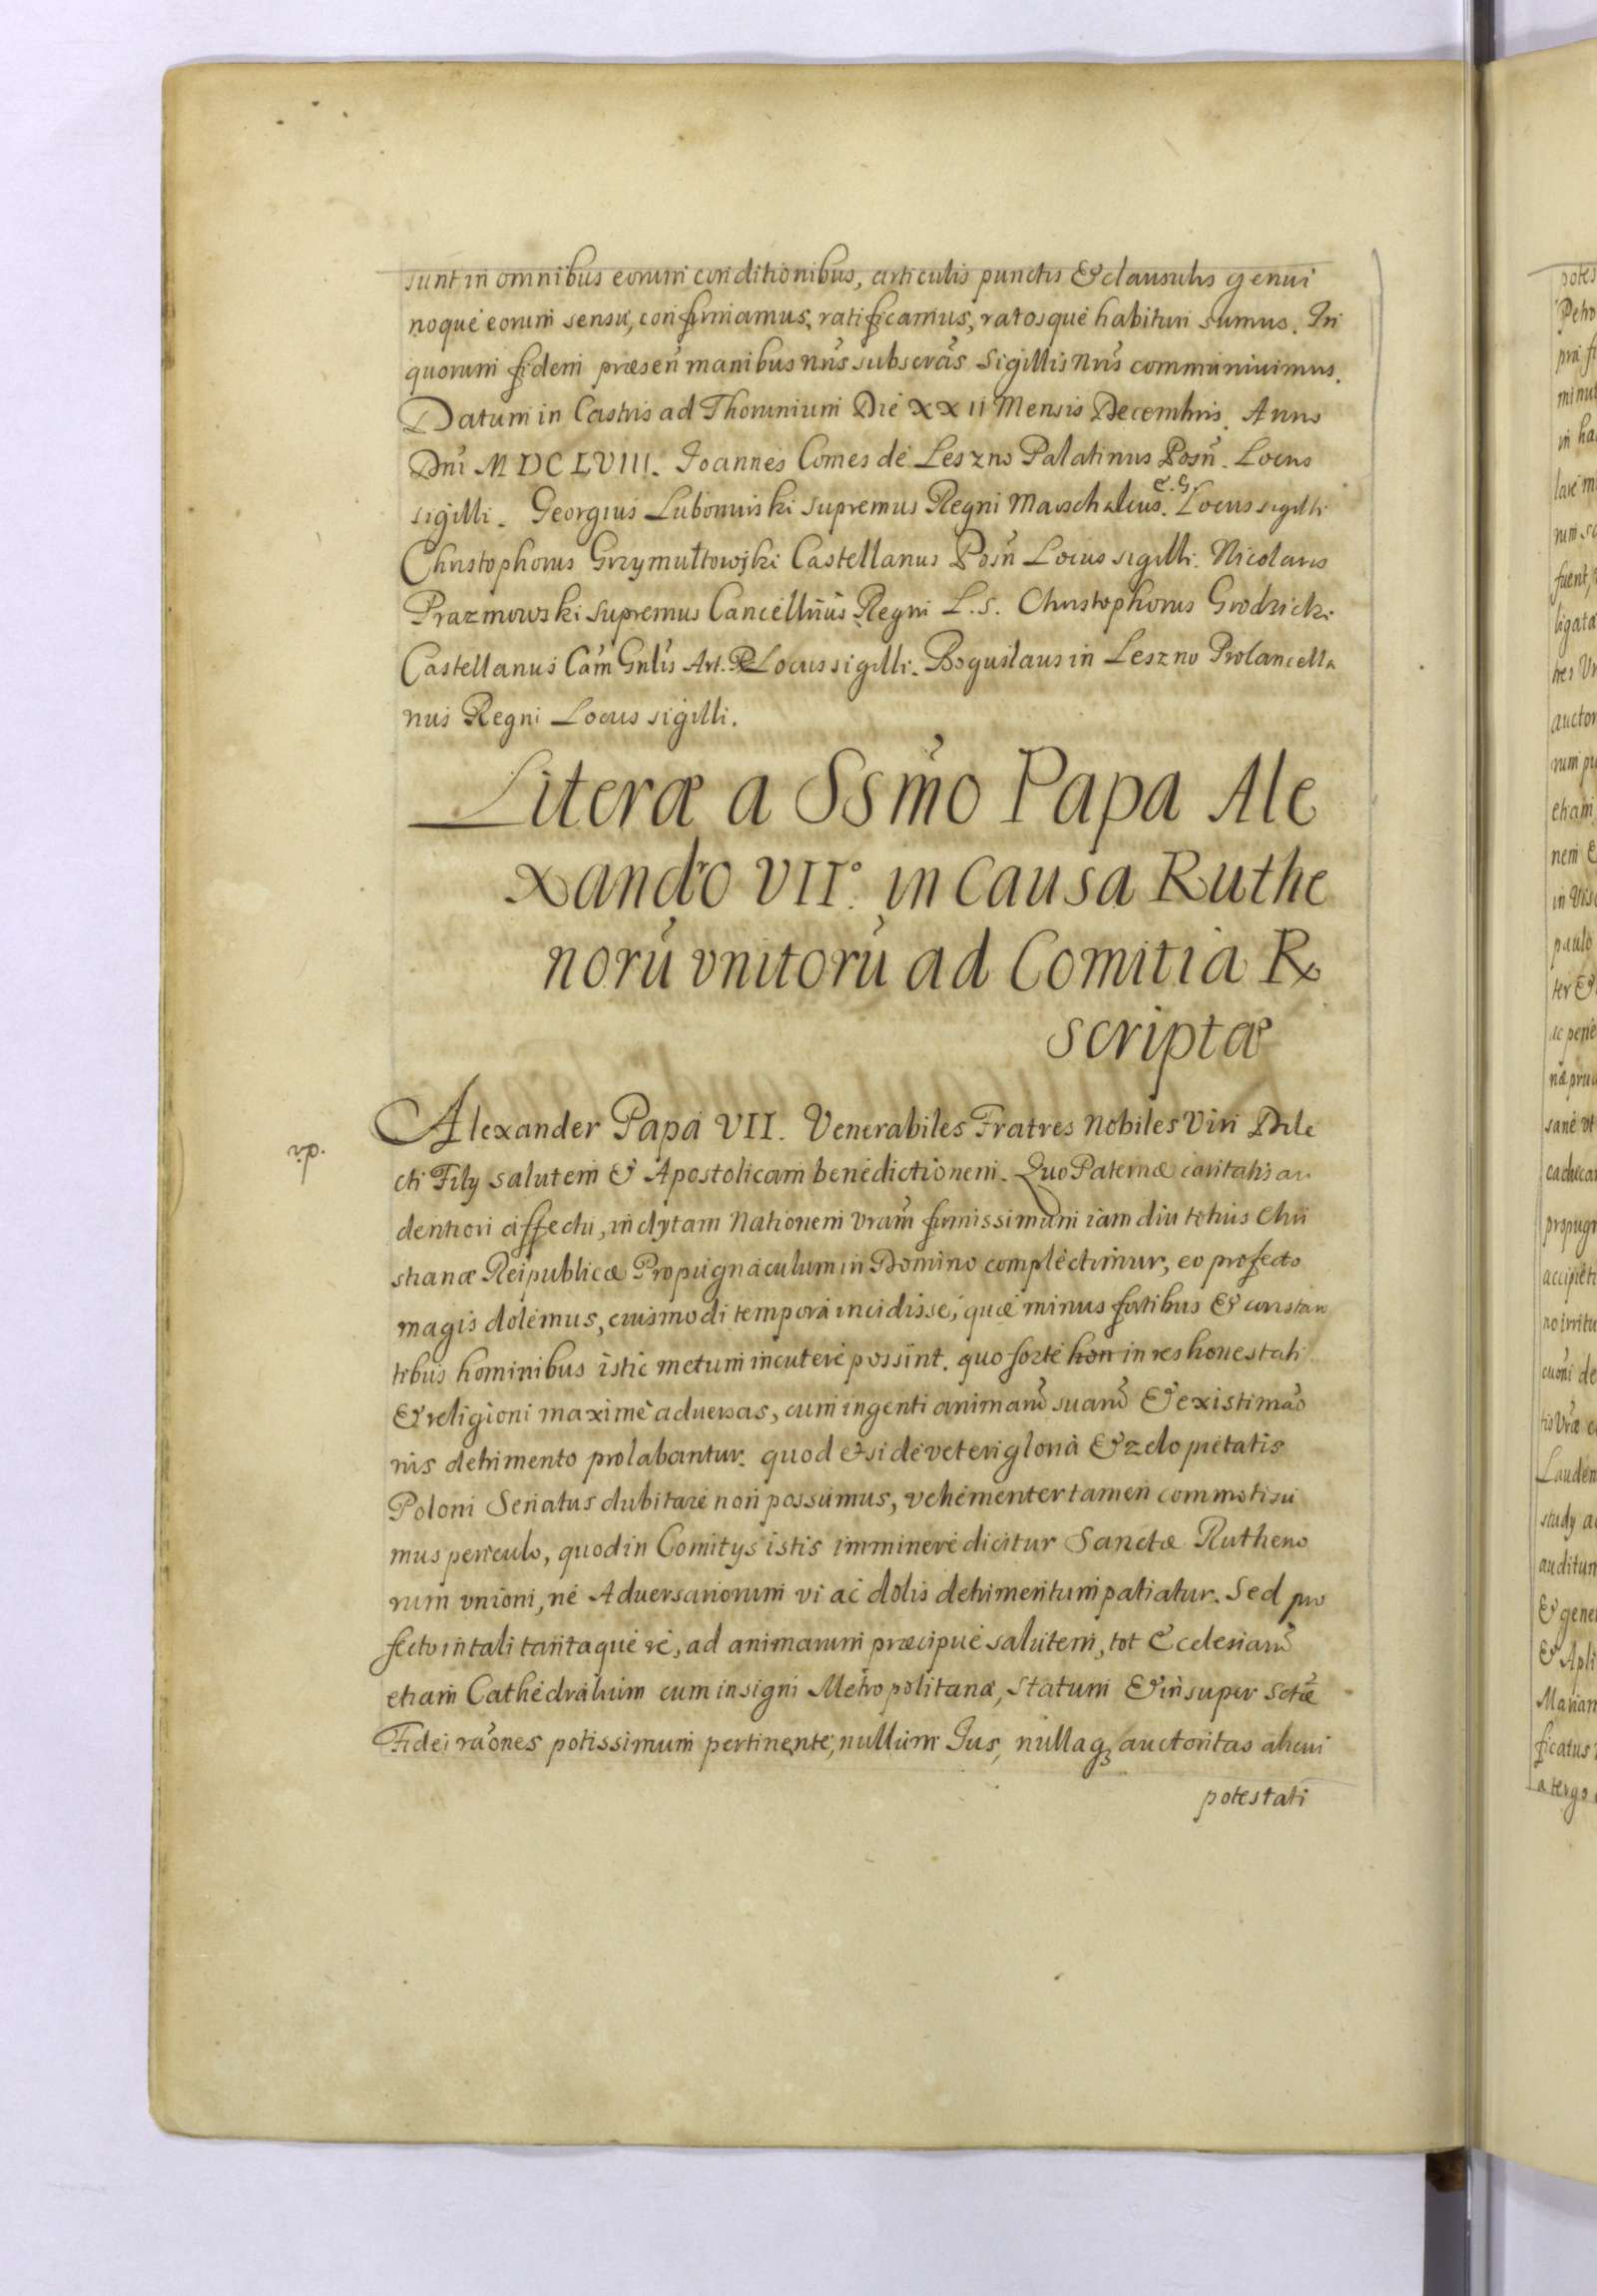 sunt in omnibus eorum conditionibus, articulis punctis & clausulis genui
noque eorum sensu, confirmamus, ratificamus, ratosque habituri sumus. In
quorum fidem præseñ manibus nr̃is subscrãs sigillis nr̃is communiuimus.
Datum in Castris ad Thorunium Die XXII Mensis Decembris. Anno
Dnĩ MDCLVIII. Joannes Comes de Leszno Palatinus Posñ. Locus
sigilli. Georgius Lubomirski supremus Regni Marschalcus. e.G. Locus sigilli
Christophorus Grzymułtowski Castellanus Posñ Locus sigilli. Nicolaus
Prazmowski supremus Cancellr̃ius Regni L.S. Christophorus Grodzicki
Castellanus Cam̃ Gnlĩs Art. P Locus sigilli. Boguslaus in Leszno Procancella
rius Regni Locus sigilli.
Literæ a Ssm̃o Papa Ale
xandro VII° in Causa Ruthe
norũ vnitorũ ad Comitia R
scriptæ
Alexander Papa VII. Venerabiles Fratres Nobiles Viri Dile
cti Filÿ salutem & Apostolicam benedictionem. Quo Paternæ caritatis ar
dentiori affectu, inclytam Nationem vram̃ firmissimum iam diu totius Chri
stianæ Reipublicæ Propugnaculum in Domino complectimur, eo profecto
magis dolemus, eiusmodi tempora incidisse, quæ minus fortibus & constan
tibus hominibus istic metum incutere possint. quo forte hon in res honestati
& religioni maxime aduersas, cum ingenti animarũ suarũ & existimaõ
nis detrimento prolabantur. quod etsi de veteri gloria & zelo pietatis
Poloni Senatus dubitare non possumus, vehementer tamen commoti su
mus periculo, quod in Comitÿs istis imminere dicitur Sanctæ Rutheno
rum vnioni, ne Aduersariorum vi ac dolis detrimentum patiatur. Sed pro
fecto in tali tantaque re, ad animarum præcipue salutem, tot Ecclesiarũ
etiam Cathedralium cum insigni Metropolitana, statum & insuper sctæ̃
Fidei raõnes potissimum pertinente, nullum Jus, nullaq3 auctoritas alicui
potestati